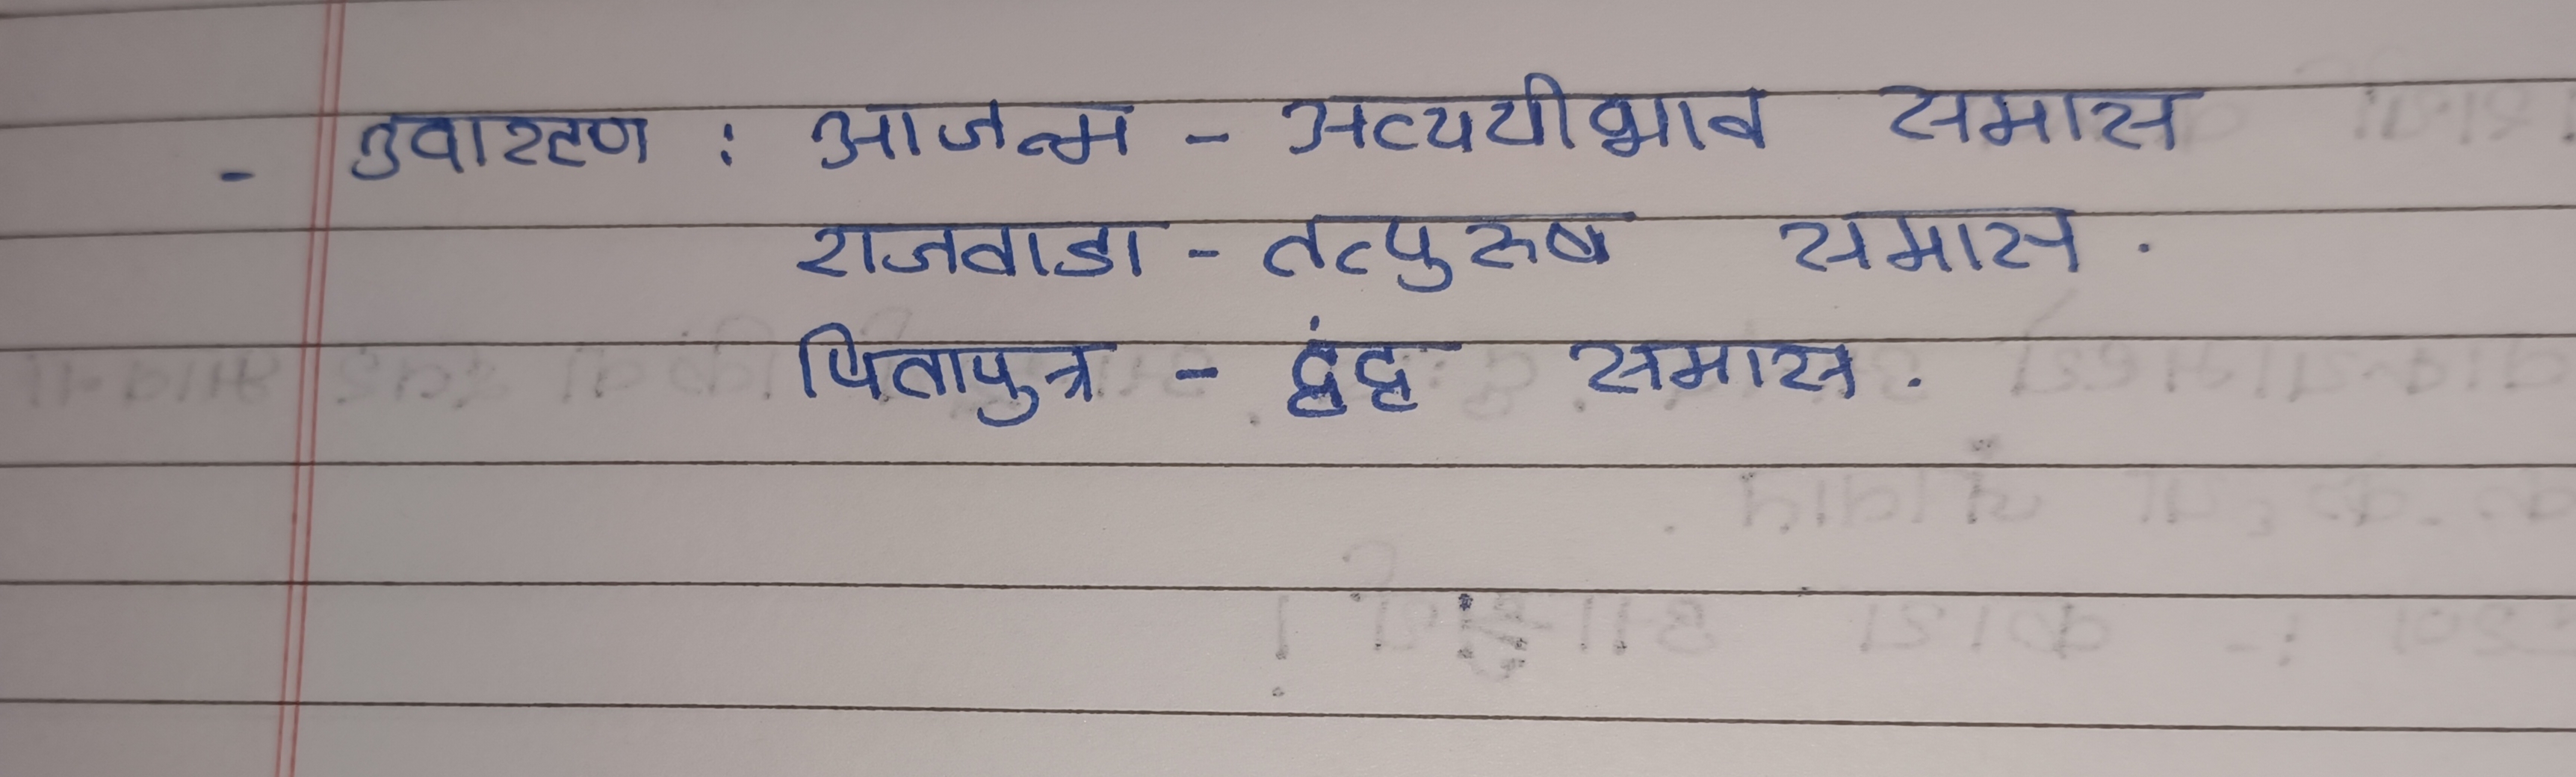 - उदाहरण : आजन्म - अव्ययीभाव समास
राजवाडा - तत्पुरुष समास .
पितापुत्र - द्वंद्व समास .